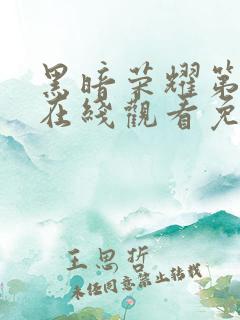 黑暗荣耀第
在綫觀看免
王思哲
未经同意禁止转载